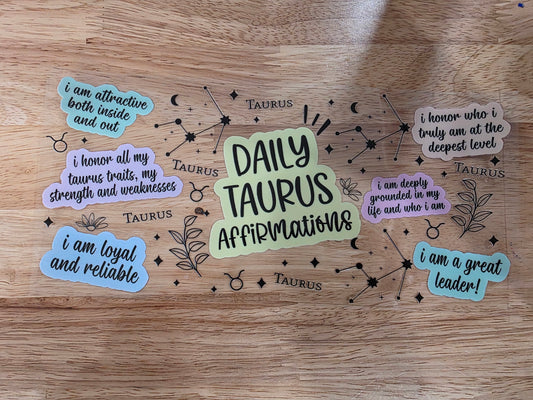 i am attractive
both inside
and out
Taurus
i honor who i
truly am at the
deepest level
i honor all my
taurus traits, my
strength and weaknesses
Taurus
DAILY
TAURUS
AFFIRMATIONS
i am deeply
grounded in my
life and who i am
Taurus
Taurus
i am loyal
and reliable
Taurus
i am a great
leader!